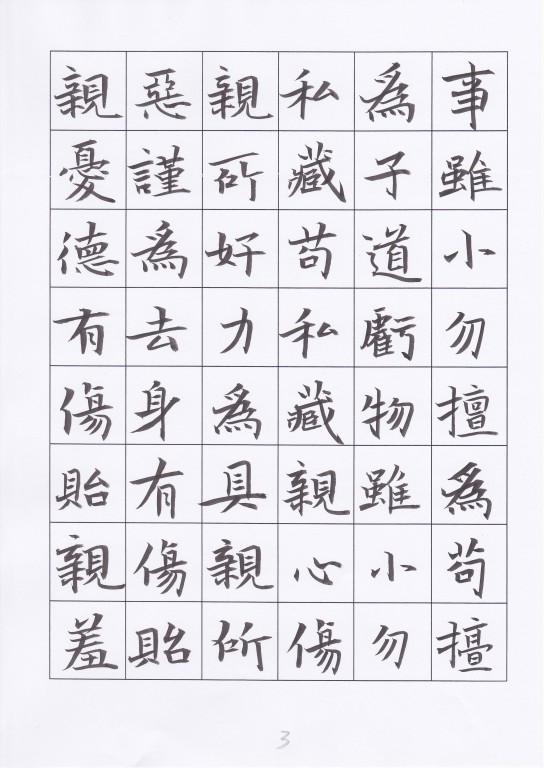 事雖小勿擅爲苟擅
爲子道虧物雖小勿
私藏苟私藏親心傷
親所好力爲具親所
惡謹爲去身有傷貽
親憂德有傷貽親羞
3